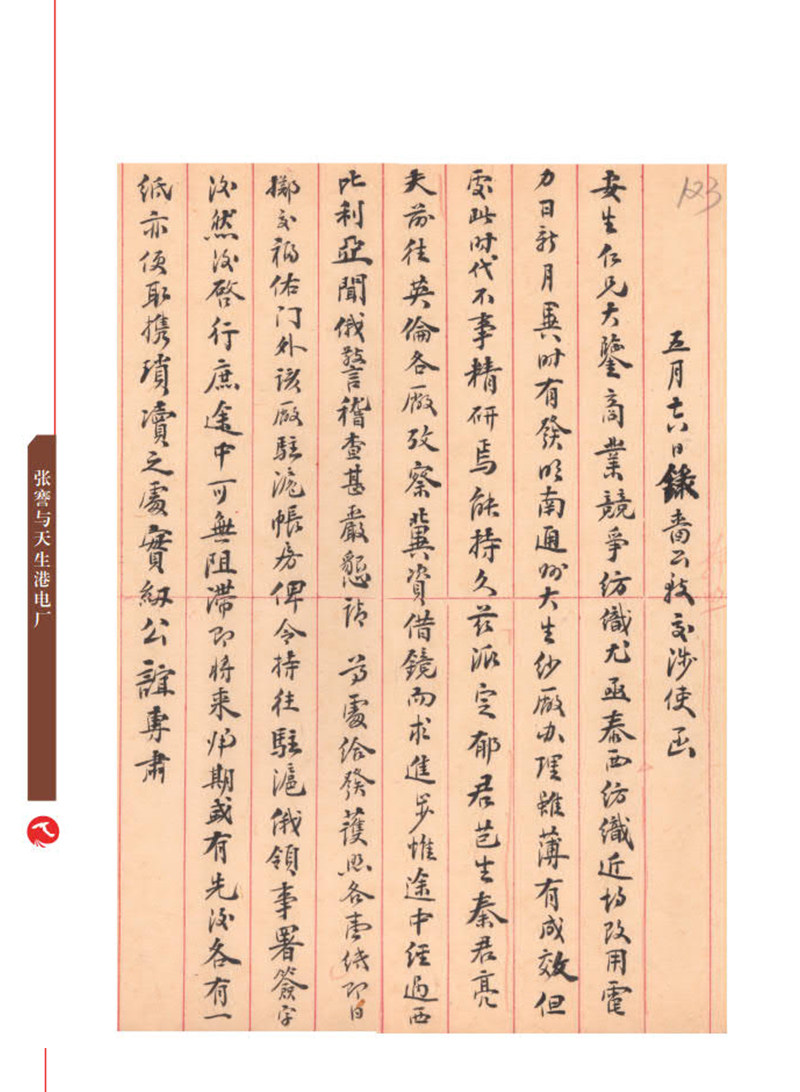 123
五月十六日錄嗇公致交涉使函
安生仁兄大鑒商業競爭紡織尤亟泰西紡織近均改用電
力日新月異时有發明南通州大生纱廠办理雖薄有成效但
處此时代不事精研焉能持久兹派定郁君芑生秦君亮
夫前往英倫各廠攷察冀資借鏡而求進步惟途中經過西
比利亞聞俄警稽查甚嚴懇請 尊處给發護照各壹纸即日
擲交福佑门外该廠駐滬帳房俾令持往駐滬俄領事署簽字
后然后啓行庶途中可無阻滯即將来归期或有先后各有一
纸亦便取携瑣瀆之處實紉公誼專肅
张謇与天生港电厂